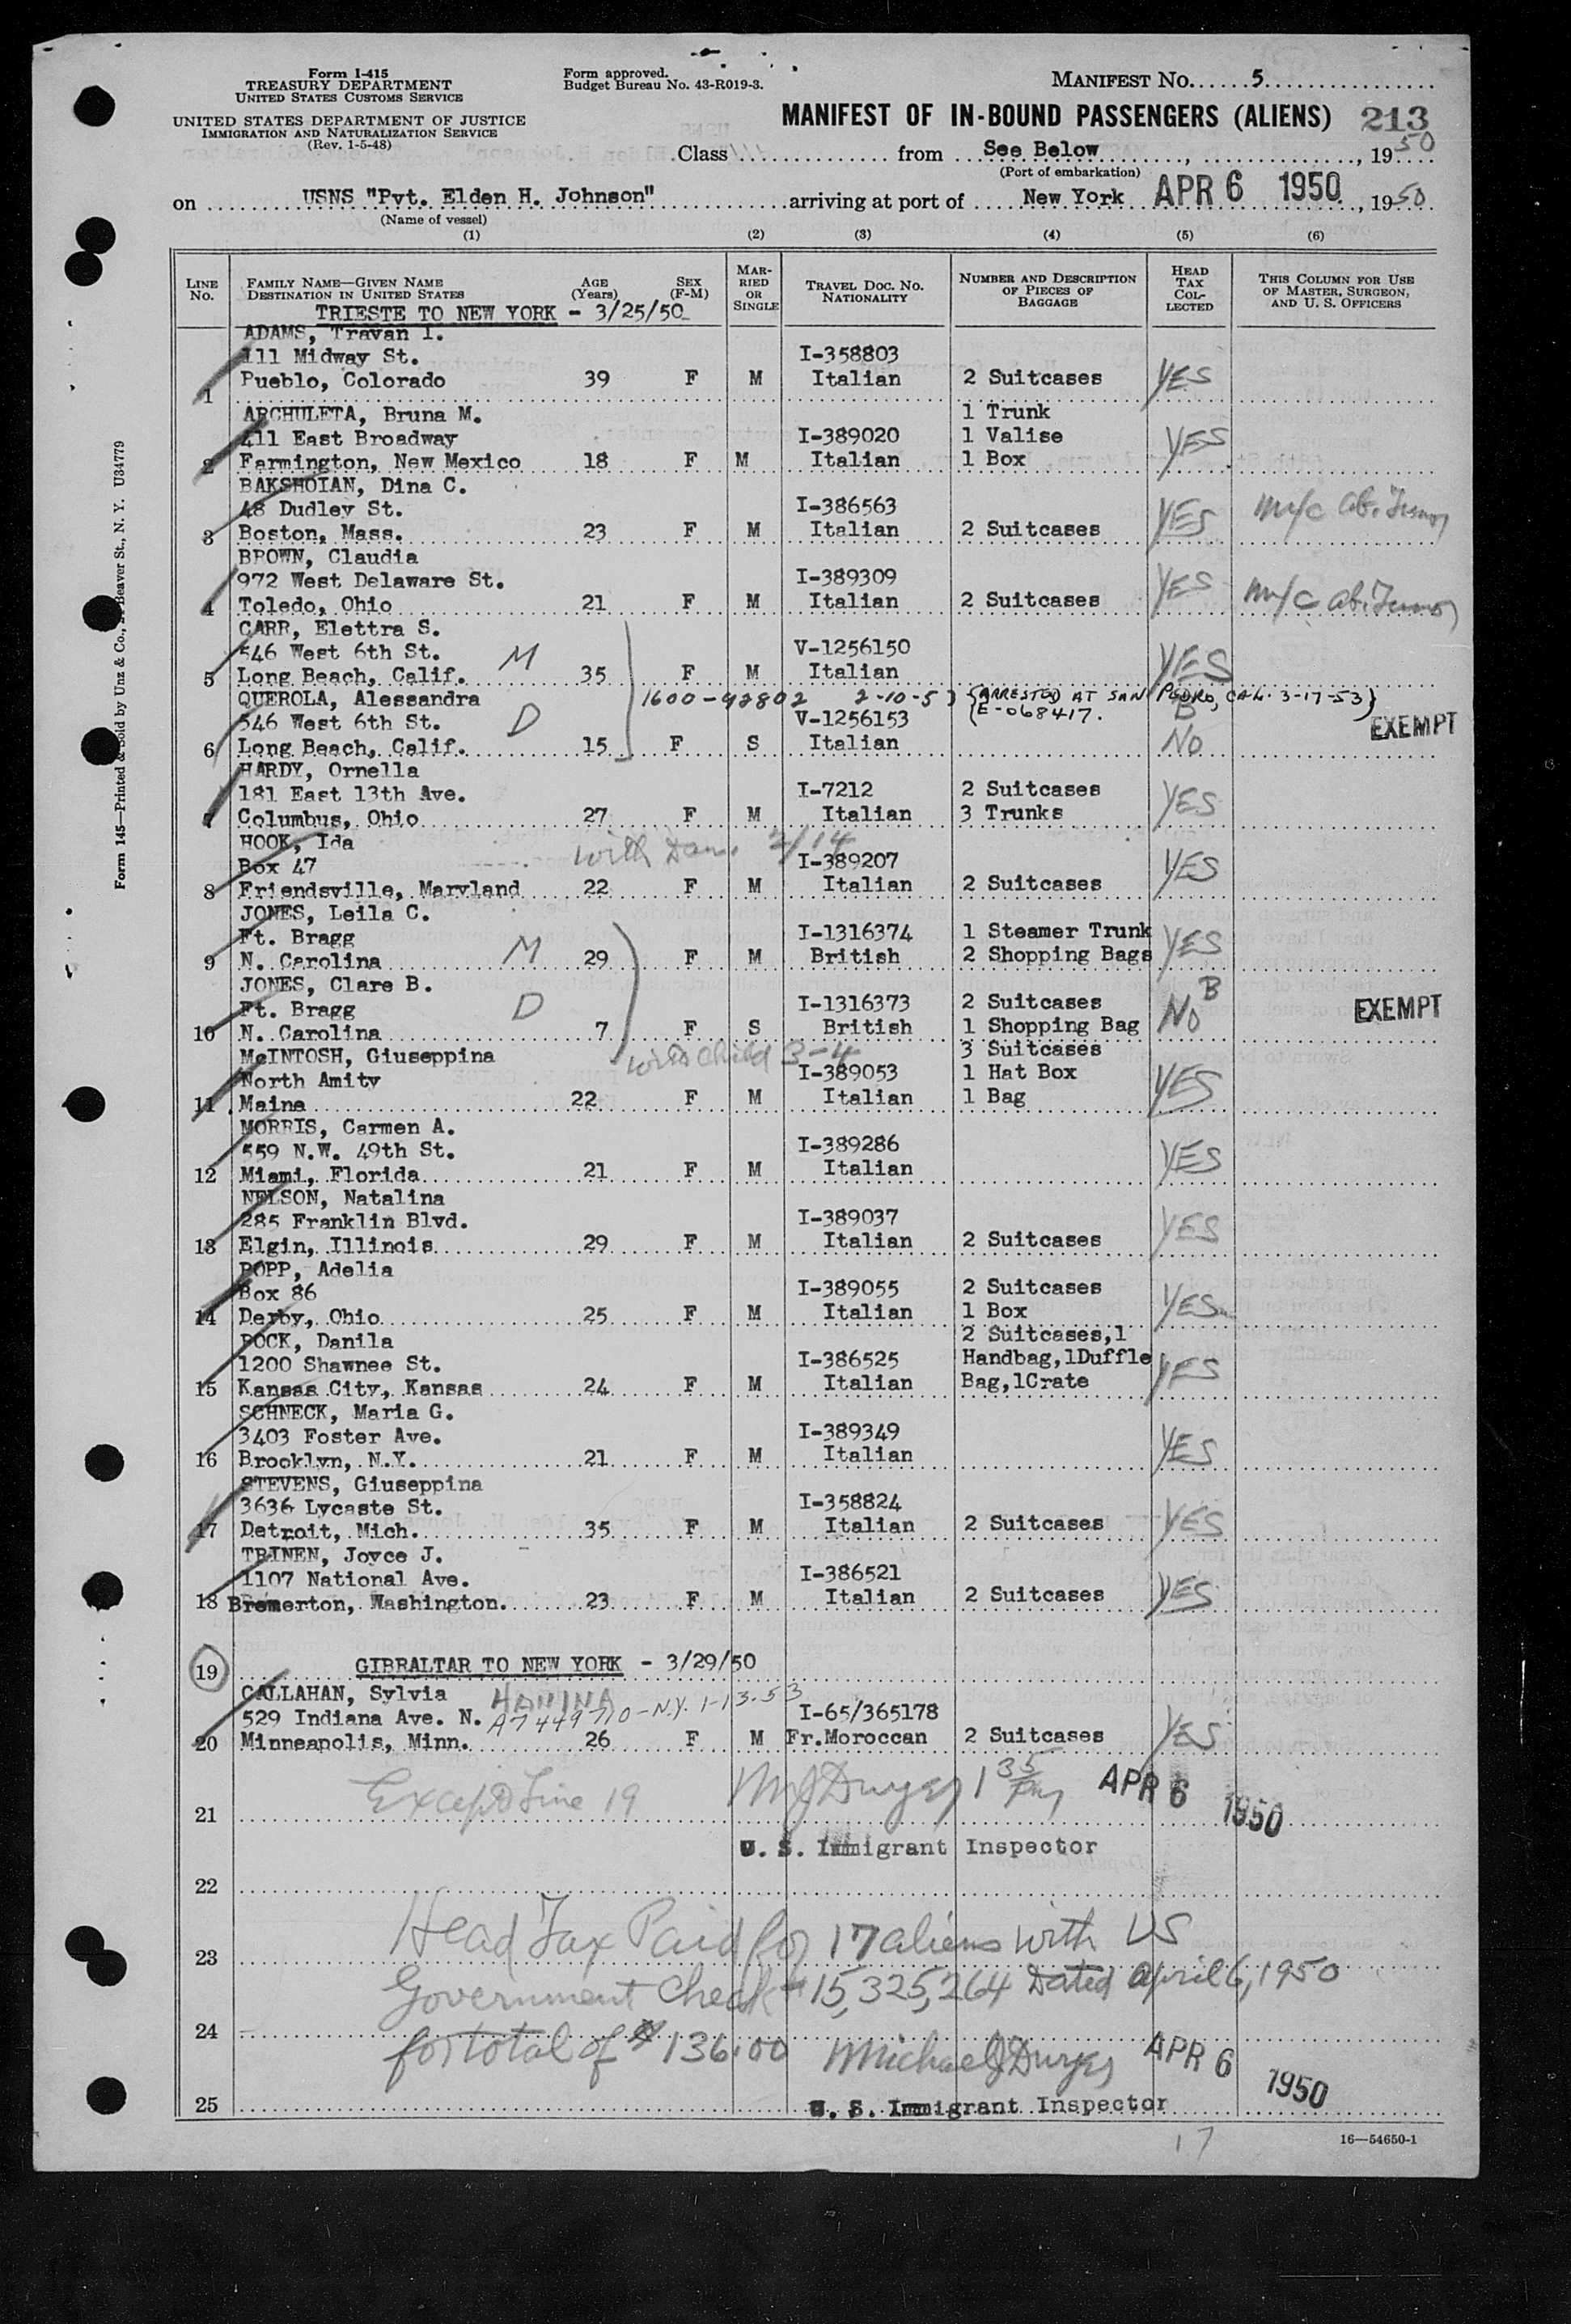 Form I-415
TREASURY DEPARTMENT
UNITED STATES CUSTOMS SERVICE
UNITED STATES DEPARTMENT OF JUSTICE
IMMIGRATION AND NATURALIZATION SERVICE
(Rev. 1-5-48)
Form approved.
Budget Bureau No. 43-R019-3.
MANIFEST No. 5
MANIFEST OF IN-BOUND PASSENGERS (ALIENS) 213
Class from See Below, 1950
(Port of embarkation)
on USNS "Pvt. Elden H. Johnson" arriving at port of New York APR 6 1950, 1950
(Name of vessel)
(1) (2) (3) (4) (5) (6)
LINE No. FAMILY NAME—GIVEN NAME DESTINATION IN UNITED STATES AGE (Years) SEX (F-M) MARRIED OR SINGLE TRAVEL DOC. No. NATIONALITY NUMBER AND DESCRIPTION OF PIECES OF BAGGAGE HEAD TAX COLLECTED THIS COLUMN FOR USE OF MASTER, SURGEON, AND U. S. OFFICERS
TRIESTE TO NEW YORK - 3/25/50
ADAMS, Travan I.
111 Midway St. I-358803
1 Pueblo, Colorado 39 F M Italian 2 Suitcases YES
ARCHULETA, Bruna M. 1 Trunk
411 East Broadway I-389020 1 Valise
2 Farmington, New Mexico 18 F M Italian 1 Box YES
BAKSHOIAN, Dina C.
48 Dudley St. I-386563
3 Boston, Mass. 23 F M Italian 2 Suitcases YES m/c ab.
BROWN, Claudia
972 West Delaware St. I-389309
4 Toledo, Ohio 21 F M Italian 2 Suitcases YES m/c ab.
CARR, Elettra S.
546 West 6th St. M V-1256150
5 Long Beach, Calif. 35 F M Italian YES
QUEROLA, Alessandra 1600-92802 2-10-53 (ARRESTED AT SAN PEDRO, CAL. 3-17-53)
546 West 6th St. D V-1256153 E-068417. B
6 Long Beach, Calif. 15 F S Italian No EXEMPT
HARDY, Ornella
181 East 13th Ave. I-7212 2 Suitcases
7 Columbus, Ohio 27 F M Italian 3 Trunks YES
HOOK, Ida with
Box 47 I-389207
8 Friendsville, Maryland 22 F M Italian 2 Suitcases YES
JONES, Leila C.
Ft. Bragg I-1316374 1 Steamer Trunk
9 N. Carolina M 29 F M British 2 Shopping Bags YES
JONES, Clare B.
Ft. Bragg D I-1316373 2 Suitcases B
10 N. Carolina 7 F S British 1 Shopping Bag No EXEMPT
McINTOSH, Giuseppina with child 3-4 3 Suitcases
North Amity I-389053 1 Hat Box
11 Maine 22 F M Italian 1 Bag YES
MORRIS, Carmen A.
559 N.W. 49th St. I-389286
12 Miami, Florida 21 F M Italian YES
NELSON, Natalina
285 Franklin Blvd. I-389037
13 Elgin, Illinois 29 F M Italian 2 Suitcases YES
POPP, Adelia
Box 86 I-389055 2 Suitcases
14 Derby, Ohio 25 F M Italian 1 Box YES
ROCK, Danila 2 Suitcases,1
1200 Shawnee St. I-386525 Handbag,1Duffle
15 Kansas City, Kansas 24 F M Italian Bag,1Crate YES
SCHNECK, Maria G.
3403 Foster Ave. I-389349
16 Brooklyn, N.Y. 21 F M Italian YES
STEVENS, Giuseppina
3636 Lycaste St. I-358824
17 Detroit, Mich. 35 F M Italian 2 Suitcases YES
TRINEN, Joyce J.
1107 National Ave. I-386521
18 Bremerton, Washington. 23 F M Italian 2 Suitcases YES
19 GIBRALTAR TO NEW YORK - 3/29/50
CALLAHAN, Sylvia HANINA
529 Indiana Ave. N. A7449710-N.Y. 1-13-53 I-65/365178
20 Minneapolis, Minn. 26 F M Fr.Moroccan 2 Suitcases YES
Except Line 19 MJ Dwyer 1 35 PM APR 6 1950
21
U. S. Immigrant Inspector
22
Head Tax Paid for 17 aliens with US
23
Government Check # 15,325,264 Dated April 6, 1950
24
for total of $136.00 Michael J Dwyer APR 6 1950
25 U. S. Immigrant Inspector
17
16—54650-1
Form 145—Printed & Sold by Unz & Co., Beaver St., N. Y. U34779